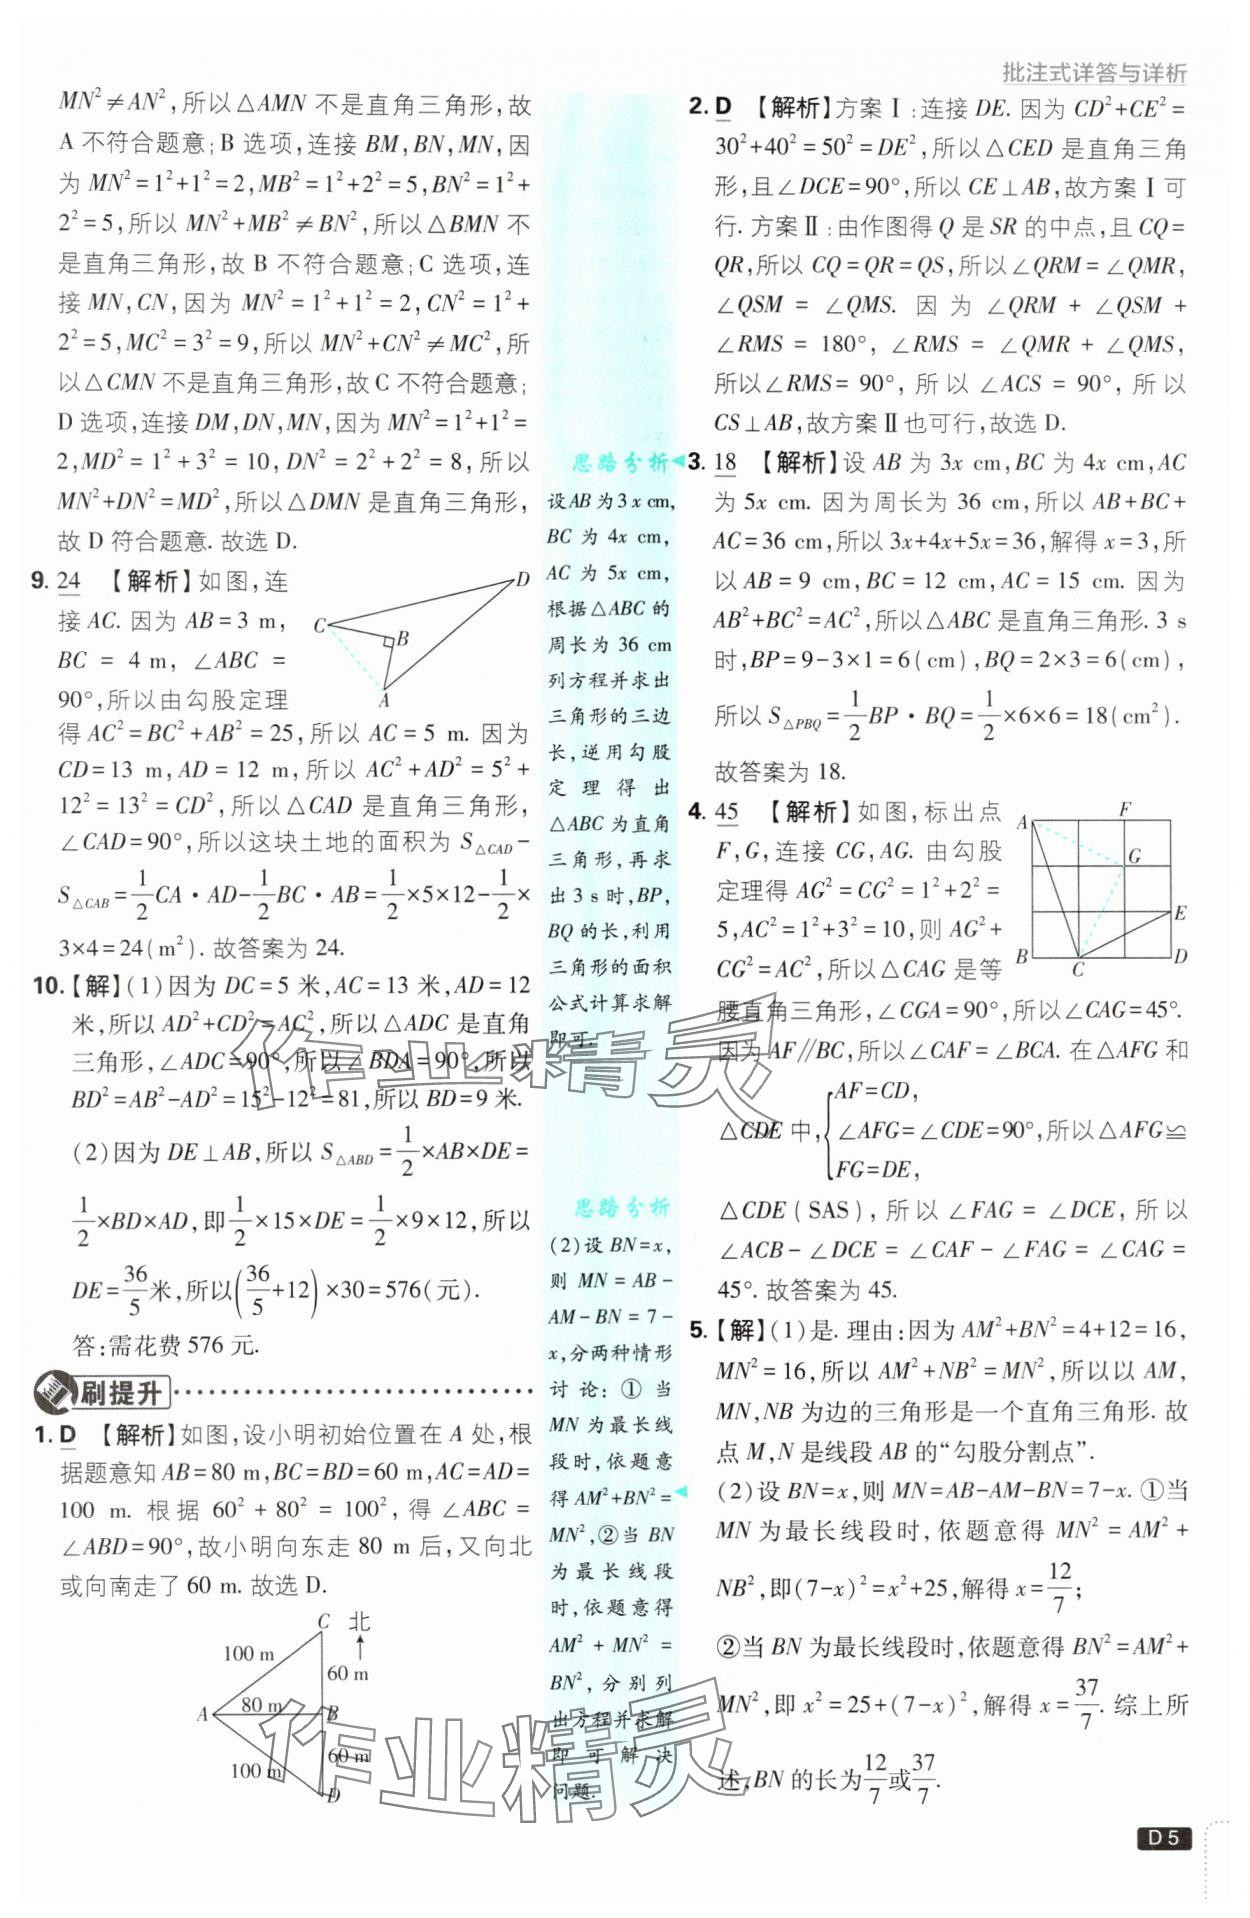 批注式详答与详析
MN²≠AN²,所以△AMN 不是直角三角形,故
A 不符合题意;B 选项,连接 BM,BN,MN,因
为 MN²=1²+1²=2,MB²=1²+2²=5,BN²=1²+
2²=5,所以 MN²+MB²≠BN²,所以△BMN 不
是直角三角形,故 B 不符合题意;C 选项,连
接 MN,CN,因为 MN²=1²+1²=2,CN²=1²+
2²=5,MC²=3²=9,所以 MN²+CN²≠MC²,所
以△CMN 不是直角三角形,故 C 不符合题意;
D 选项,连接 DM,DN,MN,因为 MN²=1²+1²=
2,MD²=1²+3²=10,DN²=2²+2²=8,所以
MN²+DN²=MD²,所以△DMN 是直角三角形,
故 D 符合题意. 故选 D.
9. 24 【解析】如图,连
接 AC. 因为 AB=3 m,
BC = 4 m, ∠ABC =
90°,所以由勾股定理
得 AC²=BC²+AB²=25,所以 AC=5 m. 因为
CD=13 m,AD=12 m,所以 AC²+AD²=5²+
12²=13²=CD²,所以△CAD 是直角三角形,
∠CAD=90°,所以这块土地的面积为 S△CAD-
S△CAB=1/2 CA·AD-1/2 BC·AB=1/2×5×12-1/2×
3×4=24(m²). 故答案为 24.
D
C
B
A
10.【解】(1)因为 DC=5 米,AC=13 米,AD=12
米,所以 AD²+CD²=AC²,所以△ADC 是直角
三角形,∠ADC=90°,所以∠BDA=90°,所以
BD²=AB²-AD²=15²-12²=81,所以 BD=9 米.
(2)因为 DE⊥AB,所以 S△ABD=1/2×AB×DE=
1/2×BD×AD,即1/2×15×DE=1/2×9×12,所以
DE=36/5米,所以(36/5+12)×30=576(元).
答:需花费 576 元.
刷提升
1. D 【解析】如图,设小明初始位置在 A 处,根
据题意知 AB=80 m,BC=BD=60 m,AC=AD=
100 m. 根据 60²+80²=100²,得∠ABC=
∠ABD=90°,故小明向东走 80 m 后,又向北
或向南走了 60 m. 故选 D.
C 北
100 m
60 m
A 80 m B
60 m
100 m
D
思路分析
设AB为3x cm,
BC 为 4x cm,
AC 为 5x cm,
根据△ABC的
周长为 36 cm
列方程并求出
三角形的三边
长,逆用勾股
定理得出
△ABC为直角
三角形,再求
出3 s时,BP,
BQ的长,利用
三角形的面积
公式计算求解
即可.
思路分析
(2)设BN=x,
则 MN=AB-
AM-BN=7-
x,分两种情形
讨论:①当
MN为最长线
段时,依题意
得AM²+BN²=
MN²,②当BN
为最长线段
时,依题意得
AM²+MN²=
BN²,分别列
出方程并求解
即可解决
问题.
2. D 【解析】方案Ⅰ:连接 DE. 因为 CD²+CE²=
30²+40²=50²=DE²,所以△CED 是直角三角
形,且∠DCE=90°,所以 CE⊥AB,故方案Ⅰ可
行. 方案Ⅱ:由作图得 Q 是 SR 的中点,且 CQ=
QR,所以 CQ=QR=QS,所以∠QRM=∠QMR,
∠QSM = ∠QMS. 因为∠QRM + ∠QSM +
∠RMS = 180°, ∠RMS = ∠QMR + ∠QMS,
所以∠RMS=90°,所以∠ACS=90°,所以
CS⊥AB,故方案Ⅱ也可行,故选 D.
3. 18 【解析】设 AB 为 3x cm,BC 为 4x cm,AC
为 5x cm. 因为周长为 36 cm,所以 AB+BC+
AC=36 cm,所以 3x+4x+5x=36,解得 x=3,所
以 AB=9 cm,BC=12 cm,AC=15 cm. 因为
AB²+BC²=AC²,所以△ABC 是直角三角形. 3 s
时,BP=9-3×1=6(cm),BQ=2×3=6(cm),
所以 S△PBQ=1/2 BP·BQ=1/2×6×6=18(cm²).
故答案为 18.
4. 45 【解析】如图,标出点
F,G,连接 CG,AG. 由勾股
定理得 AG²=CG²=1²+2²=
5,AC²=1²+3²=10,则 AG²+
CG²=AC²,所以△CAG 是等
腰直角三角形,∠CGA=90°,所以∠CAG=45°.
因为 AF∥BC,所以∠CAF=∠BCA. 在△AFG 和
△CDE 中,{AF=CD,
∠AFG=∠CDE=90°,所以△AFG≌
FG=DE,
△CDE(SAS),所以∠FAG=∠DCE,所以
∠ACB-∠DCE=∠CAF-∠FAG=∠CAG=
45°. 故答案为 45.
A F
G
E
B C D
5.【解】(1)是. 理由:因为 AM²+BN²=4+12=16,
MN²=16,所以 AM²+NB²=MN²,所以以 AM,
MN,NB 为边的三角形是一个直角三角形. 故
点 M,N 是线段 AB 的“勾股分割点”.
(2)设 BN=x,则 MN=AB-AM-BN=7-x. ①当
MN 为最长线段时,依题意得 MN²=AM²+
NB²,即(7-x)²=x²+25,解得 x=12/7;
②当 BN 为最长线段时,依题意得 BN²=AM²+
MN²,即 x²=25+(7-x)²,解得 x=37/7. 综上所
述,BN 的长为12/7或37/7.
作业精灵
作业精灵
D5